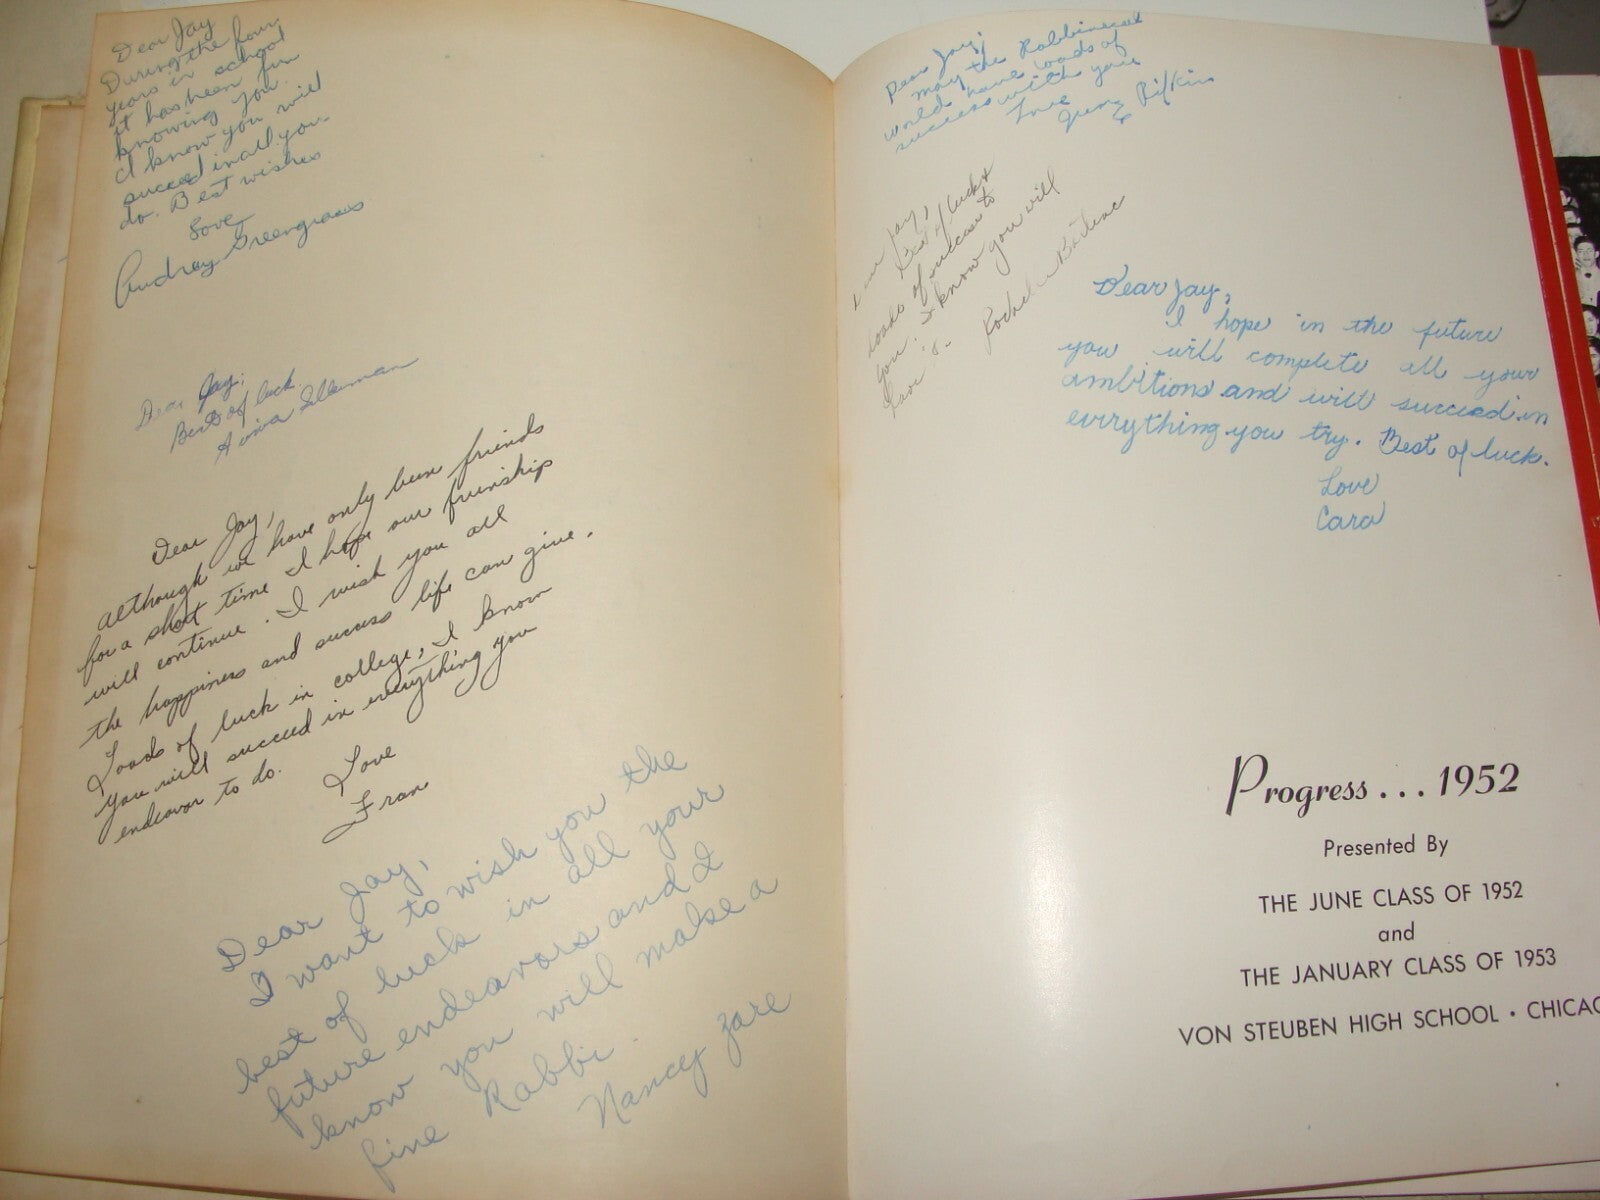 Dear Jay
During the four
years in school
it has been fun
knowing you.
I know you will
succeed in all you
do. Best wishes
Love
Audrey Greengrass
Dear Jay;
Best of luck
Dear Jay,
Although we have only been friends
for a short time I hope our frienship
will continue. I wish you all
the happiness and success life can give.
Loads of luck in college, I know
you will succeed in everything you
endeavor to do.
Love
Fran
Dear Jay,
I want to wish you the
best of luck in all your
future endeavors and I
know you will make a
fine Rabbi.
Nancy Zare
Dear Jay;
May the Rabbinical
world have loads of
success with you
Love
Rifkin
Jay,
Best of luck &
loads of success to
you. I know you will
Dear Jay,
I hope in the future
you will complete all your
ambitions and will succeed in
everything you try. Best of luck.
Love
Cara
Progress . . . 1952
Presented By
THE JUNE CLASS OF 1952
and
THE JANUARY CLASS OF 1953
VON STEUBEN HIGH SCHOOL • CHICAG